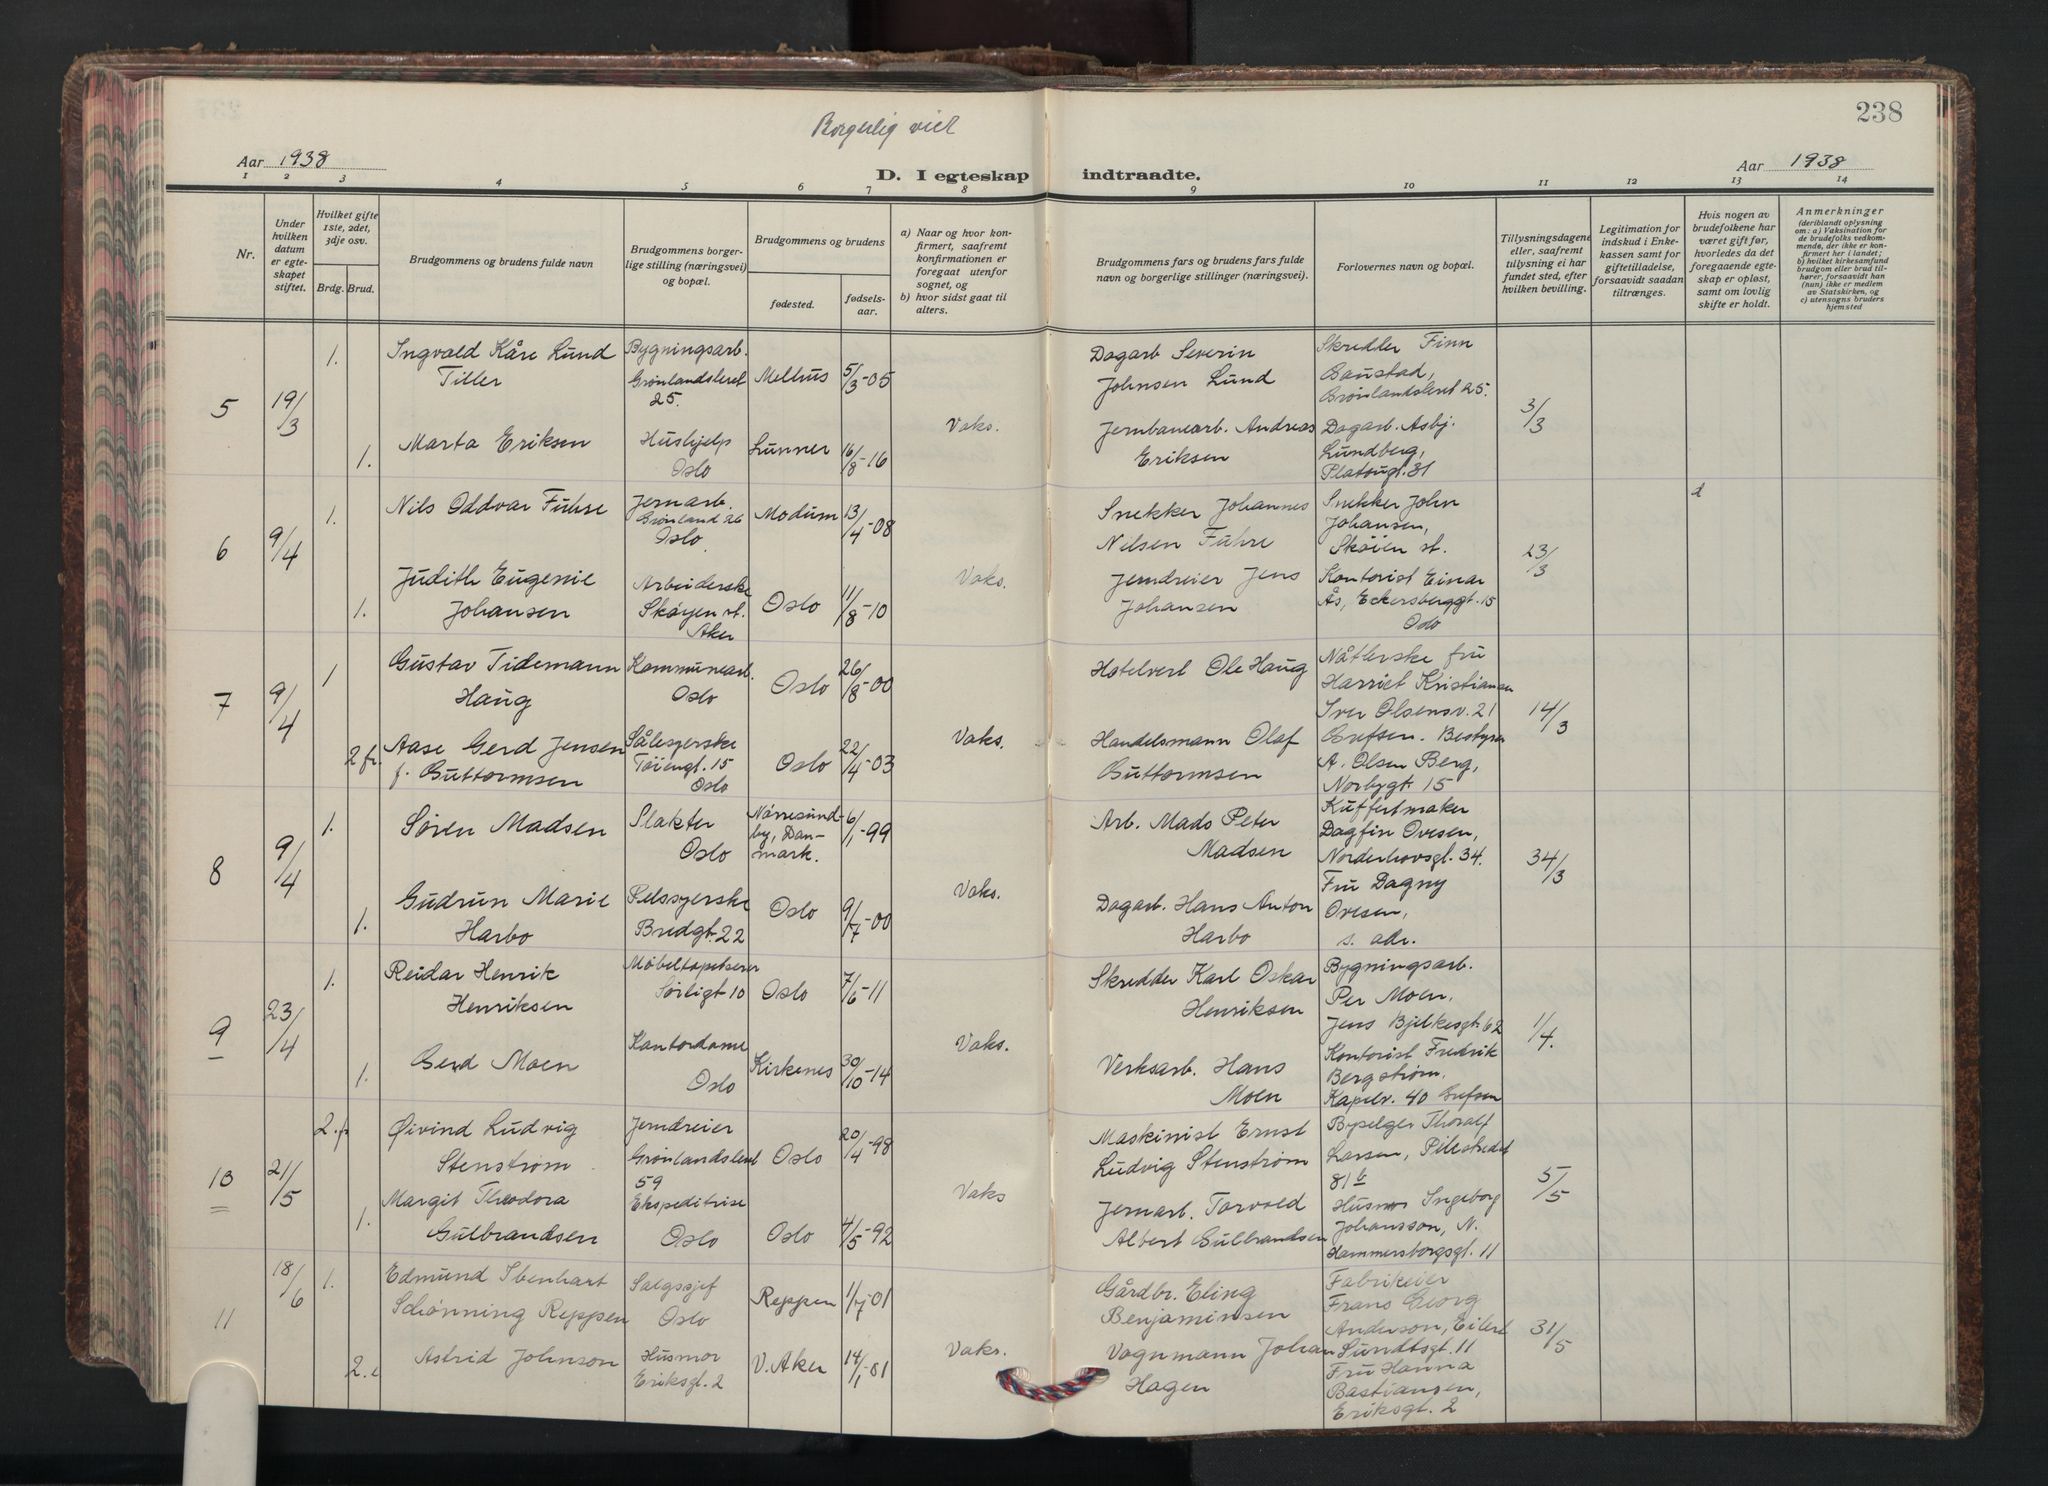 238
Borgerlig viet
Aar 1938
D. I egteskap indtraadte.
Aar 1938
1 2 3 4 5 6 7 8 9 10 11 12 13 14
Nr.
Under
hvilken
datum
er egte-
skapet
stiftet.
Hvilket gifte
1ste, 2det,
3dje osv.
Brdg. Brud.
Brudgommens og brudens fulde navn
Brudgommens borger-
lige stilling (næringsvei)
og bopæl.
Brudgommens og brudens
fødested.
fødsels-
aar.
a) Naar og hvor kon-
firmert, saafremt
konfirmationen er
foregaat utenfor
sognet, og
b) hvor sidst gaat til
alters.
Brudgommens fars og brudens fars fulde
navn og borgerlige stillinger (næringsvei).
Forlovernes navn og bopæl.
Tillysningsdagene
eller, saafremt
tillysning ei har
fundet sted, efter
hvilken bevilling.
Legitimation for
indskud i Enke-
kassen samt for
giftetilladelse,
forsaavidt saadan
tiltrænges.
Hvis nogen av
brudefolkene har
været gift før,
hvorledes da det
foregaaende egte-
skap er opløst,
samt om lovlig
skifte er holdt.
Anmerkninger
(deriblandt oplysning
om: a) Vaksination for
de brudefolks vedkom-
mende, der ikke er kon-
firmert her i landet;
b) hvilket kirkesamfund
brudgom eller brud til-
hører, forsaavidt han
(hun) ikke er medlem
av Statskirken, og
c) utensogns bruders
hjemsted
5
19/3
1.
Ingvald Kåre Lund
Tiller
Bygningsarb.
Grønlandsleret
25.
Melhus
5/3-05
Dagarb Severin
Johnsen Lund
Skredder Finn
Baustad,
Grønlandsleret 25.
3/3
1.
Marta Eriksen
Hushjelp
Oslo
Lunner
16/8-16
Vaks.
Jernbanearb. Andreas
Eriksen
Dagarb. Asbj.
Lundberg,
Platougt. 31
6
9/4
1.
Nils Oddvar Fuhre
Jernarb.
Grønland 26
Oslo
Modum
13/4-08
Snekker Johannes
Nilsen Fuhre
Snekker John
Johansen,
Skøien st.
23/3
d
1.
Judith Eugenie
Johansen
Arbeiderske
Skøyen st.
Aker
Oslo
11/8-10
Vaks.
Jerndreier Jens
Johansen
Kontorist Einar
Ås, Eckersberggt. 15
Oslo
7
9/4
1
Gustav Tidemann
Haug
Kommunearb.
Oslo
Oslo
26/8-00
Hotelvert Ole Haug
Nåtlerske fru
Harriet Kristiansen
Iver Olsensv. 21
Grefsen. Bestyrer
14/3
2 fr.
Aase Gerd Jensen
f. Guttormsen
Sålesyerske
Tøiengt. 15
Oslo
Oslo
22/4-03
Vaks.
Handelsmann Olaf
Guttormsen
A. Olsen Berg,
Norbygt. 15
8
9/4
1.
Søren Madsen
Slakter
Oslo
Nørresund-
by, Dan-
mark.
6/1-99
Arb. Mads Peter
Madsen
Kuffertmaker
Dagfin Ovesen,
Norderhovsgt. 34.
34/3
1.
Gudrun Marie
Harbo
Pelssyerske
Bredgt. 22
Oslo
9/7-00
Vaks.
Dagarb. Hans Anton
Harbo
Fru Dagny
Ovesen,
s. adr.
9
23/4
1.
Reidar Henrik
Henriksen
Møbeltapetserer
Sørligt 10
Oslo
7/6-11
Skredder Karl Oskar
Henriksen
Bygningsarb.
Per Moen,
Jens Bjelkesgt. 62
1/4.
1.
Gerd Moen
Kontordame
Oslo
Kirkenes
30/10-14
Vaks.
Verksarb. Hans
Moen
Kontorist Fredrik
Bergstrøm,
Kapelv. 40 Grefsen
10
21/5
2. fr
Øivind Ludvig
Stenstrøm
Jerndreier
Grønlandsleret
59
Oslo
20/4-98
Maskinist Ernst
Ludvig Stenstrøm
Bypelger Thoralf
Larsen, Pilestredet
81 b
5/5
1.
Margit Theodora
Gulbrandsen
Ekspeditrise
Oslo
Oslo
4/5-92
Vaks
Jernarb. Torvald
Albert Gulbrandsen
Husmor Ingeborg
Johansson, N.
Hammersborgsgt. 11
11
18/6
1.
Edmund Ibenhart
Schønning Reppen
Salgssjef
Oslo
Reppen
1/7-01
Gårdbr. Eling
Benjaminsen
Fabrikeier
Frans Georg
Anderson, Eilert
Sundtsgt. 11
31/5
2. e
Astrid Johnson
Husmor
Eriksgt. 2
V. Aker
14/1-01
Vaks.
Vognmann Johan
Hagen
Fru Hanna
Bastiansen,
Eriksgt. 2